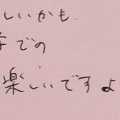 しいかも
での
楽しいですよ